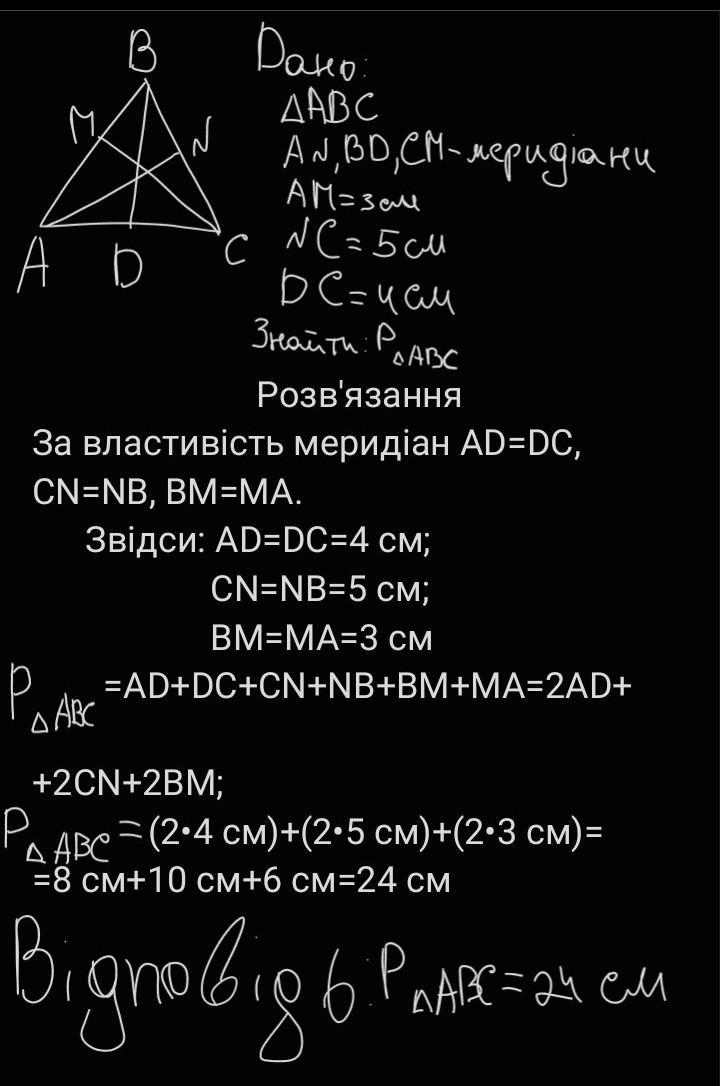 B
Дано:
△ABC
M
N
AN,BD,CM-меридіани
AM=3см
NC=5см
A
D
C
DC=4см
Знайти: P△ABC
Розв'язання
За властивість меридіан AD=DC,
CN=NB, BM=MA.
Звідси: AD=DC=4 см;
CN=NB=5 см;
BM=MA=3 см
P△ABC=AD+DC+CN+NB+BM+MA=2AD+
+2CN+2BM;
P△ABC=(2•4 см)+(2•5 см)+(2•3 см)=
=8 см+10 см+6 см=24 см
Відповідь: P△ABC=24 см